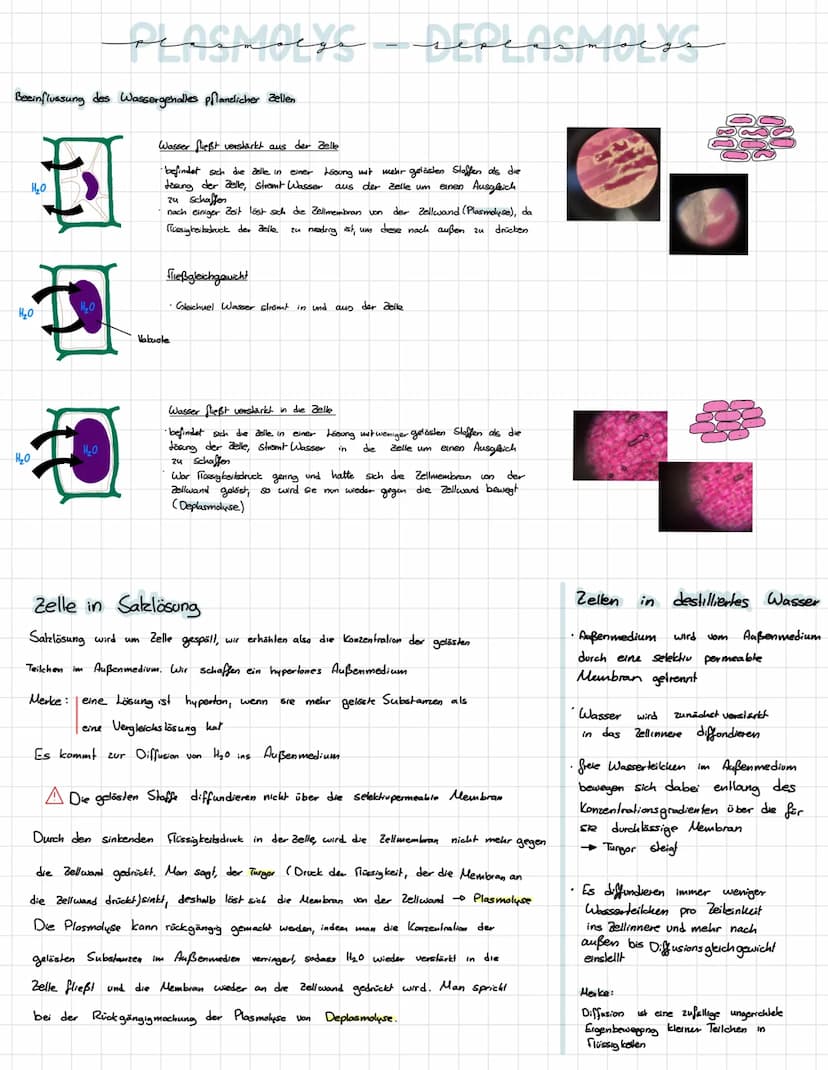 PLASMOLYS – DEPLASMOLYS
Beeinflussung des Wassergehaltes pflanzlicher Zellen
Wasser fließt verstärkt aus der Zelle
· befindet sich die Zelle in einer Lösung mit mehr gelösten Stoffen als die
Lösung der Zelle, strömt Wasser aus der Zelle um einen Ausgleich
zu schaffen
· nach einiger Zeit löst sich die Zellmembran von der Zellwand (Plasmolyse), da
Flüssigkeitsdruck der Zelle zu niedrig ist, um diese nach außen zu drücken
H₂O
Fließgleichgewicht
· Gleichviel Wasser strömt in und aus der Zelle
H₂O
H₂O
Vakuole
Wasser fließt verstärkt in die Zelle
· befindet sich die Zelle in einer Lösung mit weniger gelösten Stoffen als die
Lösung der Zelle, strömt Wasser in die Zelle um einen Ausgleich
zu schaffen
· War Flüssigkeitsdruck gering und hatte sich die Zellmembran von der
Zellwand gelöst, so wird sie nun wieder gegen die Zellwand bewegt
(Deplasmolyse)
H₂O
H₂O
Zelle in Salzlösung
Salzlösung wird um Zelle gespült, wir erhöhen also die Konzentration der gelösten
Teilchen im Außenmedium. Wir schaffen ein hypertones Außenmedium
Merke: eine Lösung ist hyperton, wenn sie mehr gelöste Substanzen als
eine Vergleichslösung hat
Es kommt zur Diffusion von H₂O ins Außenmedium
⚠ Die gelösten Stoffe diffundieren nicht über die selektivpermeable Membran
Durch den sinkenden Flüssigkeitsdruck in der Zelle, wird die Zellmembran nicht mehr gegen
die Zellwand gedrückt. Man sagt, der Turgor (Druck der Flüssigkeit, der die Membran an
die Zellwand drückt) sinkt, deshalb löst sich die Membran von der Zellwand → Plasmolyse
Die Plasmolyse kann rückgängig gemacht werden, indem man die Konzentration der
gelösten Substanzen im Außenmedien verringert, sodass H₂O wieder verstärkt in die
Zelle fließt und die Membran wieder an die Zellwand gedrückt wird. Man spricht
bei der Rückgängigmachung der Plasmolyse von Deplasmolyse.
Zellen in destilliertes Wasser
· Außenmedium wird vom Außenmedium
durch eine selektiv permeable
Membran getrennt
· Wasser wird zunächst verstärkt
in das Zellinnere diffondieren
· freie Wasserteilchen im Außenmedium
bewegen sich dabei entlang des
Konzentrationsgradienten über die für
sie durchlässige Membran
→ Turgor steigt
· Es diffundieren immer weniger
Wasserteilchen pro Zeiteinheit
ins Zellinnere und mehr nach
außen bis Diffusionsgleichgewicht
einstellt
Merke:
Diffusion ist eine zufällige ungerichtete
Eigenbewegung kleiner Teilchen in
Flüssigkeiten